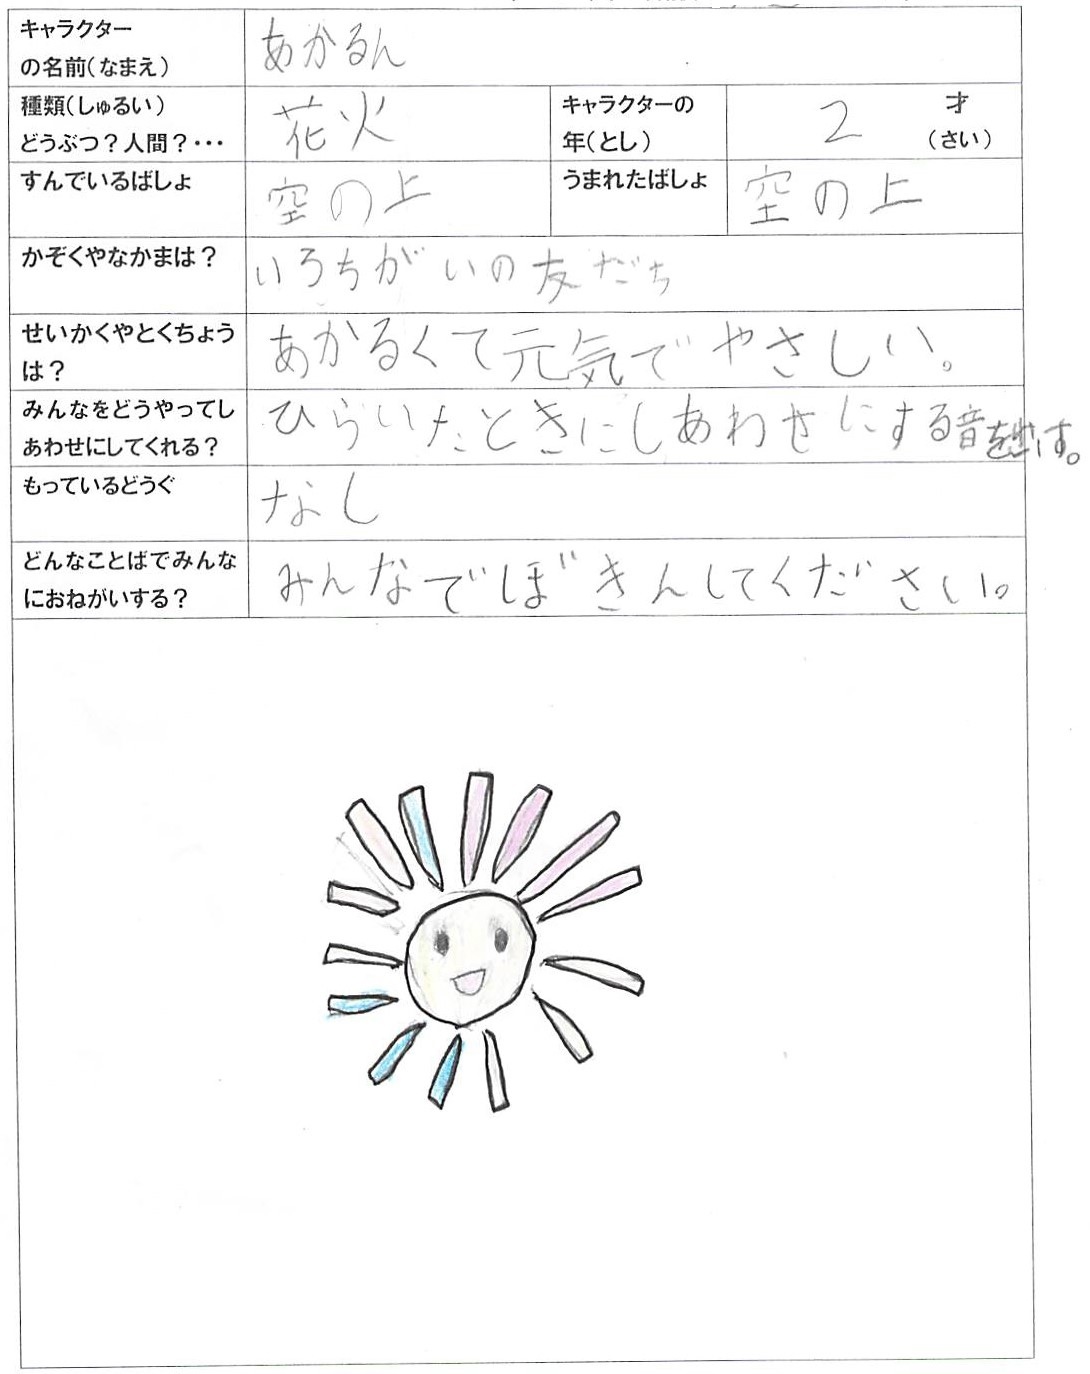 キャラクター
の名前(なまえ)
あかるん
種類(しゅるい)
どうぶつ？人間？・・・
花火
キャラクターの
年(とし)
2
才
(さい)
すんでいるばしょ
空の上
うまれたばしょ
空の上
かぞくやなかまは？
いろちがいの友だち
せいかくやとくちょう
は？
あかるくて元気でやさしい。
みんなをどうやってし
あわせにしてくれる？
ひらいたときにしあわせにする音を出す。
もっているどうぐ
なし
どんなことばでみんな
におねがいする？
みんなでぼきんしてください。